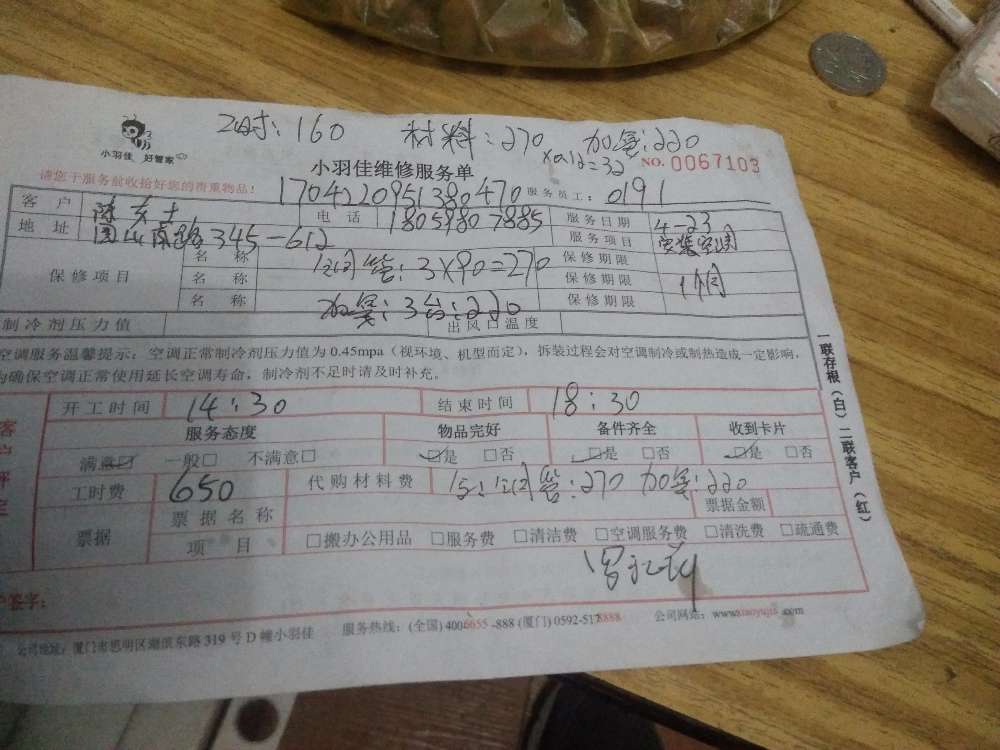 工时:160 材料:270 加氟:220
×0.12=32
小羽佳 好管家
小羽佳维修服务单
NO. 0067103
请您于服务前收拾好您的贵重物品!
170422095138047​0 服务员工: 0191
客户 陈女士 电话 18059807885 服务日期 4-23
地址 345-612 服务项目 安装空调
保修项目 名称 管:3×90=270 保修期限
名称 保修期限 1个月
名称 加氟:3台:220 保修期限
制冷剂压力值 出风口温度
空调服务温馨提示:空调正常制冷剂压力值为0.45mpa(视环境、机型而定),拆装过程会对空调制冷或制热造成一定影响,
为确保空调正常使用延长空调寿命,制冷剂不足时请及时补充。
开工时间 14:30 结束时间 18:30
服务态度 物品完好 备件齐全 收到卡片
满意☑ 一般□ 不满意□ ☑是 □否 ☑是 □否 ☑是 □否
工时费 650 代购材料费 管:270 加氟:220
票据 票据名称 票据金额
项目 □搬办公用品 □服务费 □清洁费 □空调服务费 □清洗费 □疏通费
户签字:
公司地址:厦门市思明区湖滨东路319号D幢小羽佳 服务热线:(全国)4006655-888 (厦门)0592-5178888 公司网站:www.xiaoyujia.com
一联存根(白)二联客户(红)